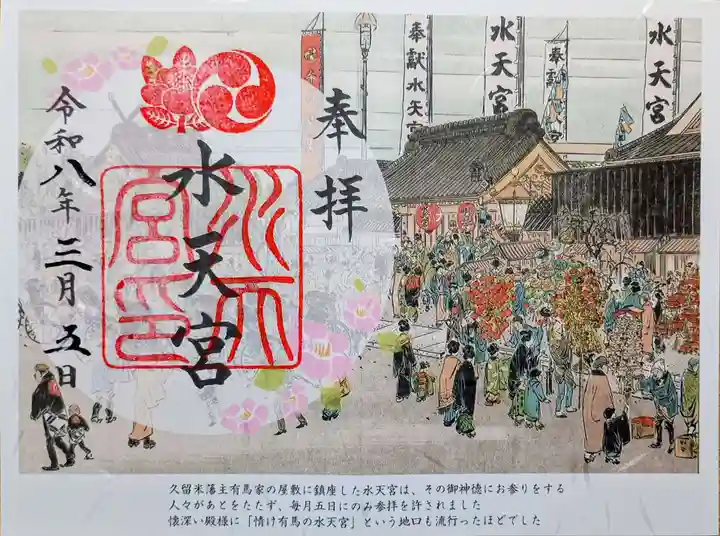 奉拝
水天宮
水天宮印
令和八年三月五日
奉献水天宮
水天宮
奉献
水天宮
久留米藩主有馬家の屋敷に鎮座した水天宮は、その御神徳にお参りをする
人々があとをたたず、毎月五日にのみ参拝を許されました
懐深い殿様に「情け有馬の水天宮」という地口も流行ったほどでした